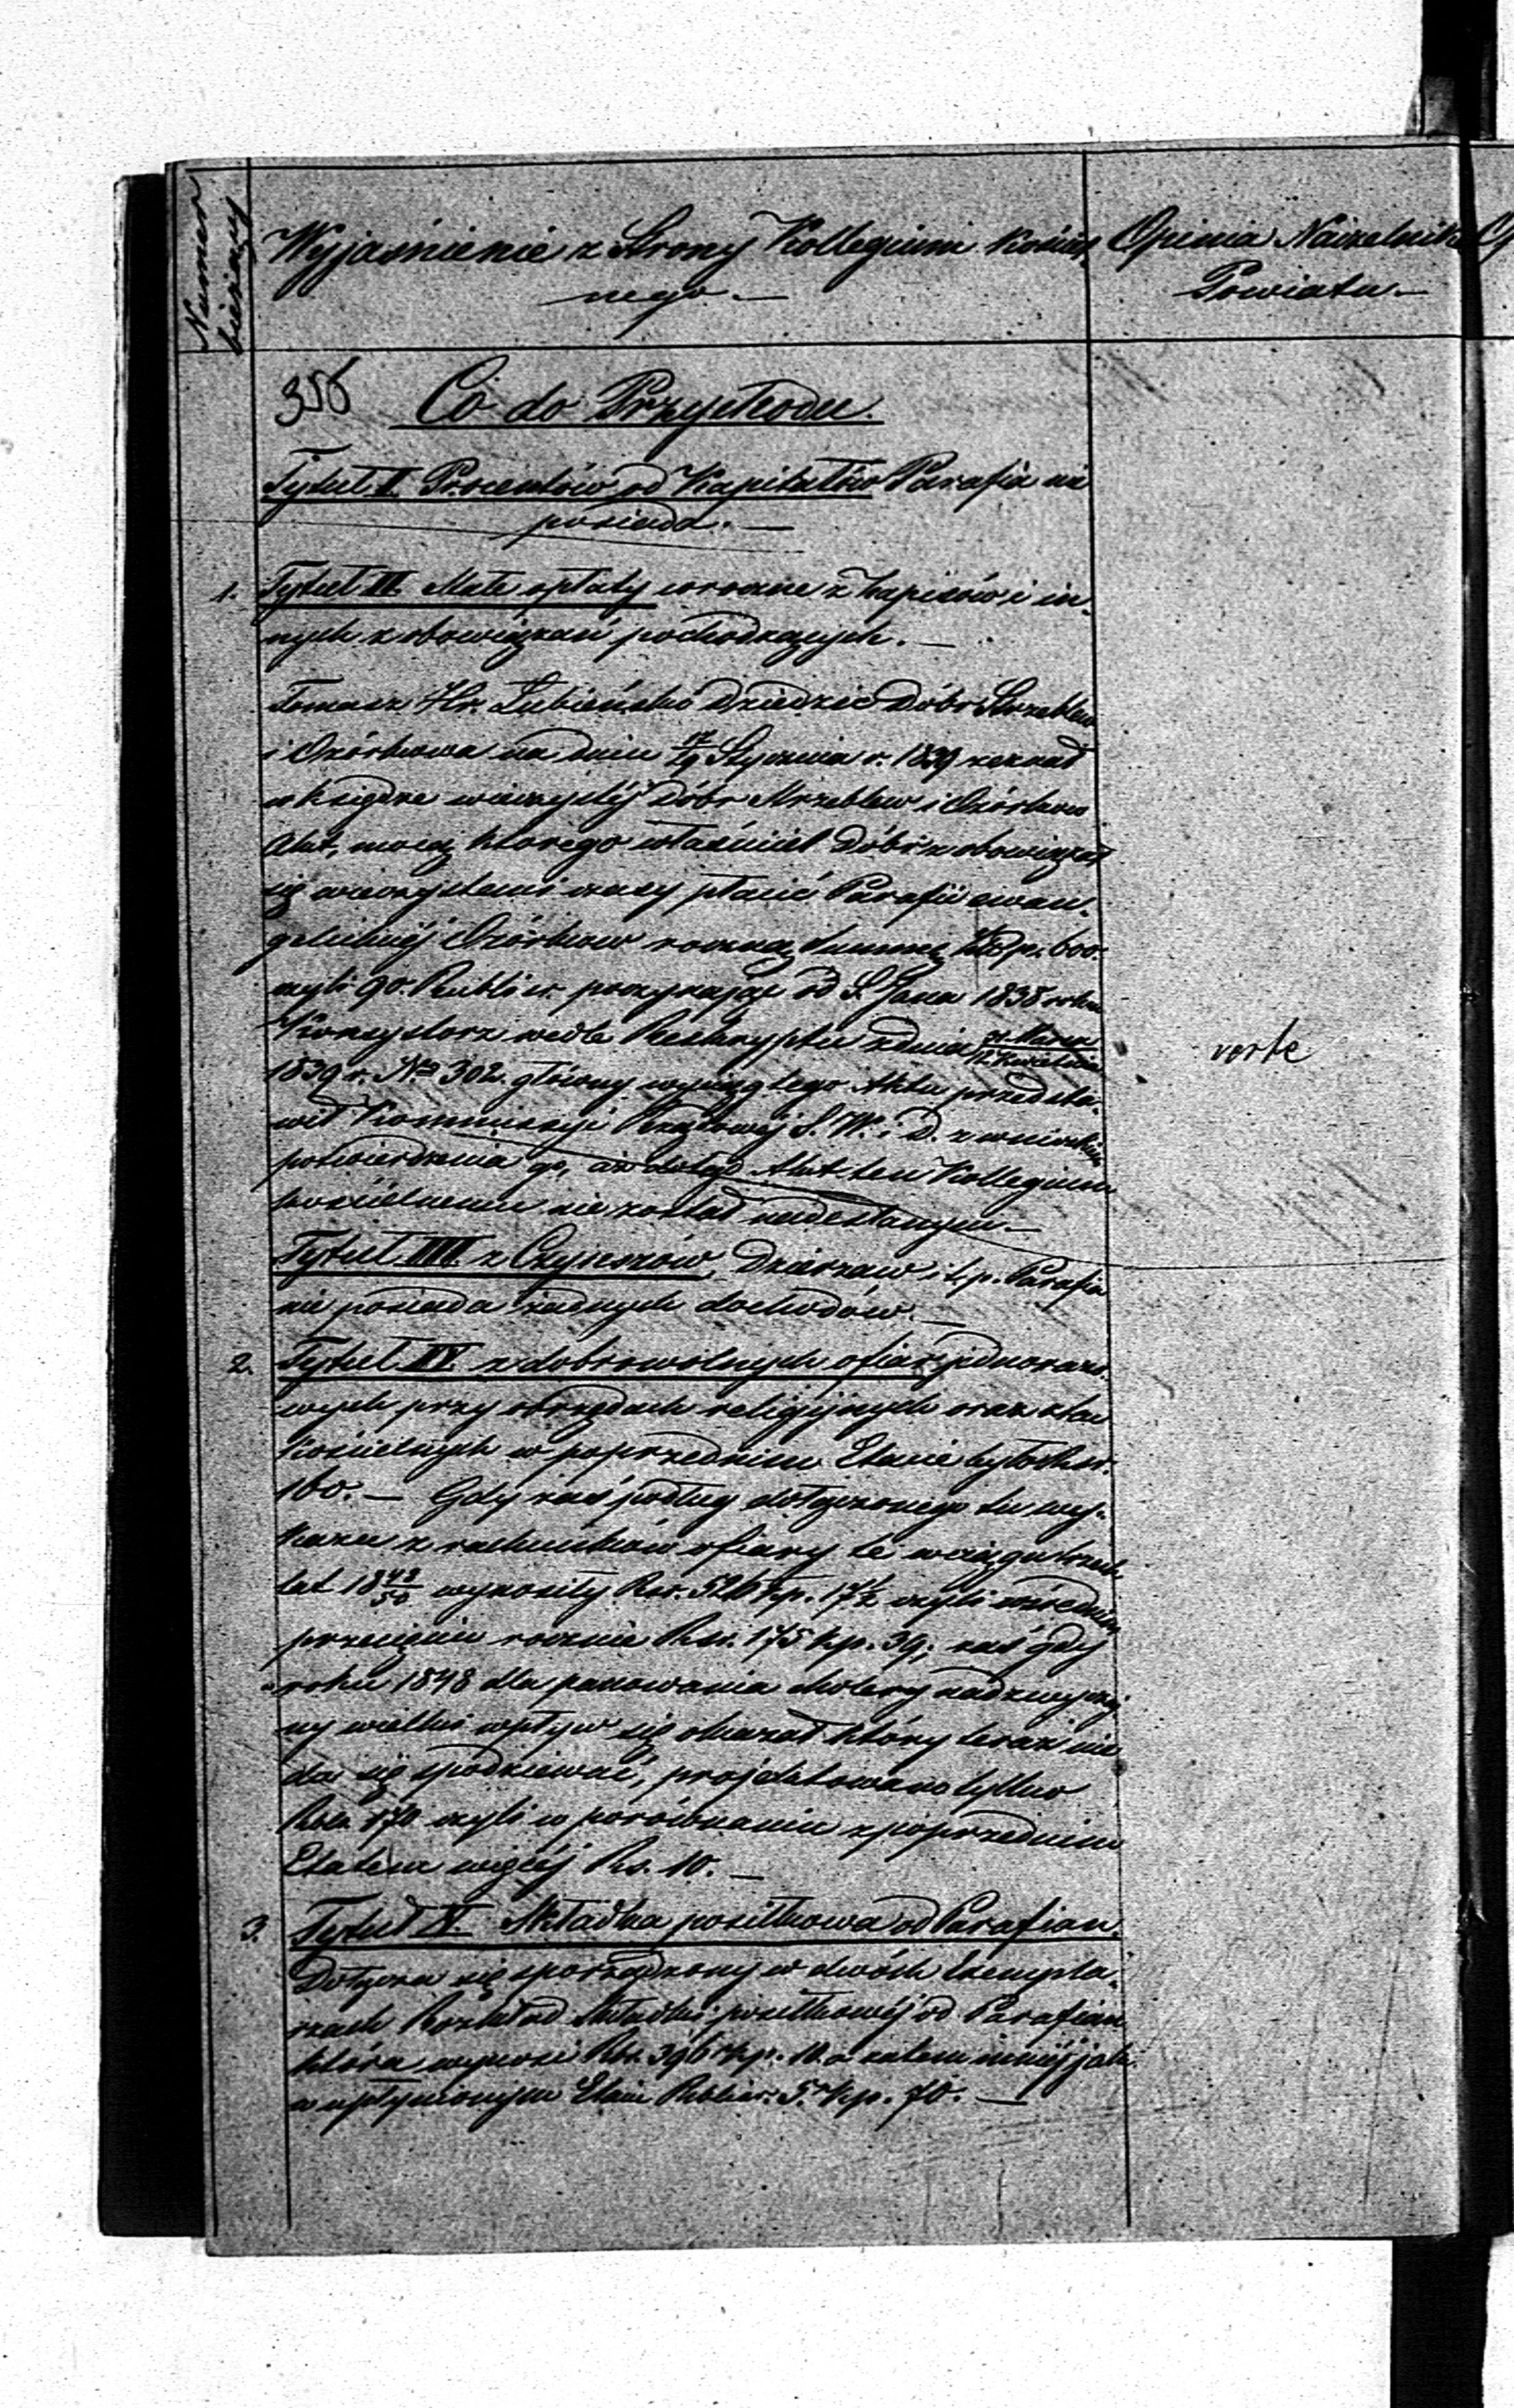 Numer bieżący
Wyjaśnienie z Strony Kollegium Kościel-
nego.—
Opinia Naczelnika
Powiatu.—
356 Co do Przychodu.
Tytuł I. Procentów od Kapitałów Parafia nie
posiada.—
1. Tytuł II. Małe opłaty coroczne z Zapisów i in-
nych z obowiązań pochodzących.—
Tomasz Hr. Łubieński Dziedzic Dóbr Strzeblew
i Ozorkowa na dniu 17/29 Stycznia r. 1839 zeznał
w księdze wieczystéj Dóbr Strzeblew i Ozorkow
Akt, mocą którego właściciel Dóbr zobowiązał
się wieczystemi czasy płacić Parafii ewan-
gelickiéj Ozorkow roczną Summę Złp. 600.
czyli 90. Rubli sr. poczynając od S. Jana 1838 roku
Konsystorz wedle Reskryptu z dnia 31 Marca/12 Kwietnia
1839 r. No 302. główny wyciąg tego Aktu przedsta-
wił Kommissyi Rządowéj S. W. i D. z wnioskiem
potwierdzenia go, aż dotąd Akt ten Kollegium
kościelnemu nie został nadesłanym.—
Tytuł III. z Czynszów, Dzierzaw i t. p. Parafia
nie posiada żadnych dochodów.—
2. Tytuł IV. z dobrowolnych ofiar jednorazo-
wych przy obrzędach religijnych oraz
Kościelnych w poprzednim Etacie było Rsr.
160.— Gdy zaś podług dołączonego tu wy-
kazu z rachunków ofiary te w ciągu trzech
lat 18 48/50 wynosiły Rsr. 526 kp. 17½ czyli w średnim
przecięciu rocznie Rsr. 175 kp. 39; zaś gdy
roku 1848 dla panowania cholery nadzwyczaj-
ny wielki wpływ się okazał który teraz nie
da się spodziewać, projektowano tylko
Rsr. 170 czyli w porównaniu z poprzednim
Etatem więcéj Rs. 10.—
3. Tytuł V. Składka posiłkowa od Parafian.
Dołącza się sporządzony w dwóch Exempla-
rzach Rozkład Składki posiłkowéj od Parafian
która wynosi Rsr. 396 kp. 10. a zatem mniéj jak
w upłynionym Etacie Rubli sr. 5. kp. 70.—
verte